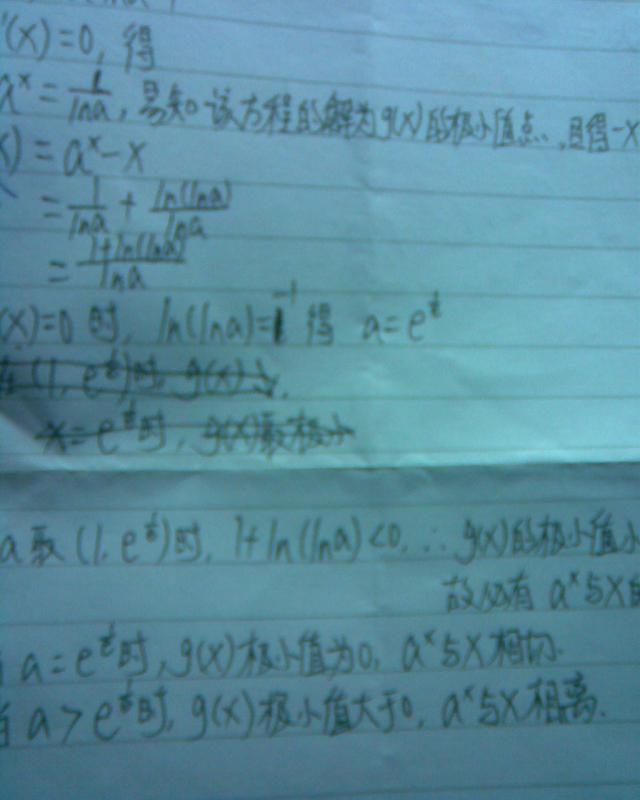 '(x)=0, 得
a^x = 1/lna, 易知该方程的解为g(x)的极小值点, 且得-x
x) = a^x - x
= 1/lna + ln(lna)/lna
= (1+ln(lna))/lna
(x)=0 时, ln(lna)=-1 得 a=e^(1/e)
在(1, e^(1/e))时, g(x)
x=e^(1/e)时, g(x)取极小
a取(1, e^(1/e))时, 1+ln(lna)<0, ∴ g(x)的极小值小
故必有 a^x与x的
a=e^(1/e)时, g(x)极小值为0, a^x与x相切.
a>e^(1/e)时, g(x)极小值大于0, a^x与x相离.